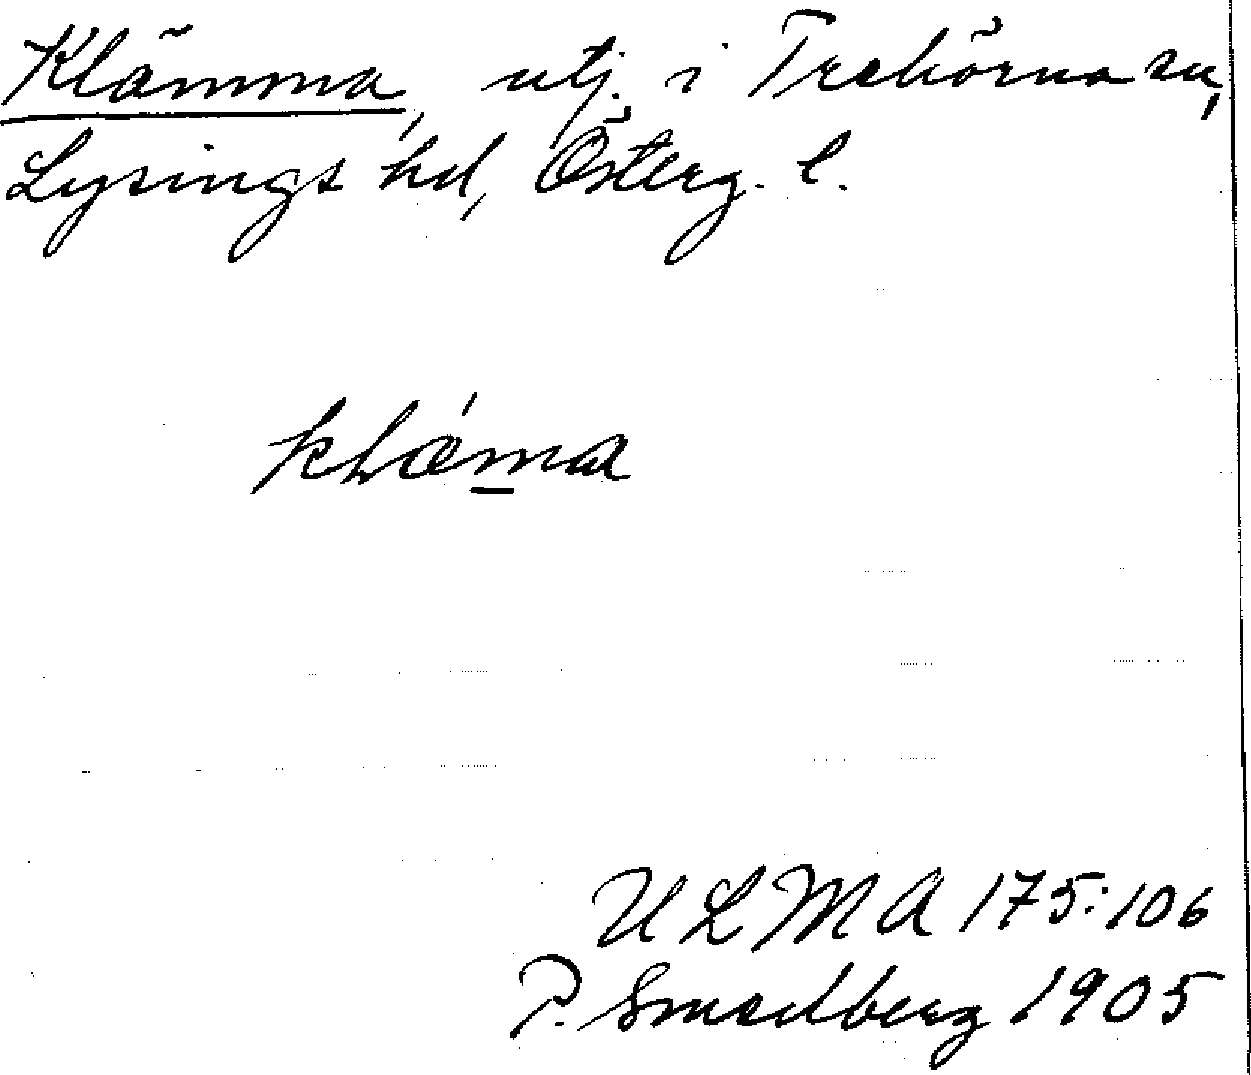 Klämma, utj. i Trehörna sn,
Lysings hd, Österg. l.
klæ´ma
ULMA 175:106
P. Smedberg 1905